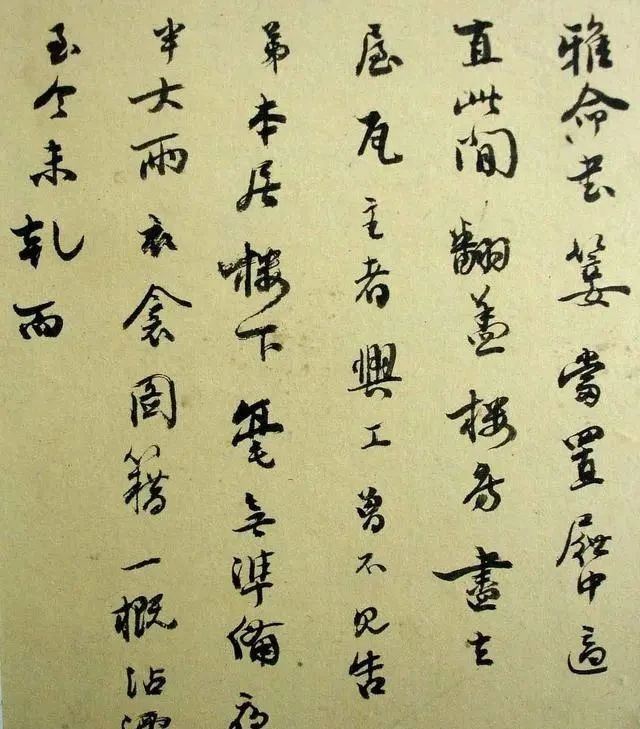 雅命書簍當置屜中適
直此間翻蓋樓房盡去
屋瓦主者興工曾不見告
弟本居樓下毫無準備夜
半大雨衣衾圖籍一概沾濕
至今未乾而